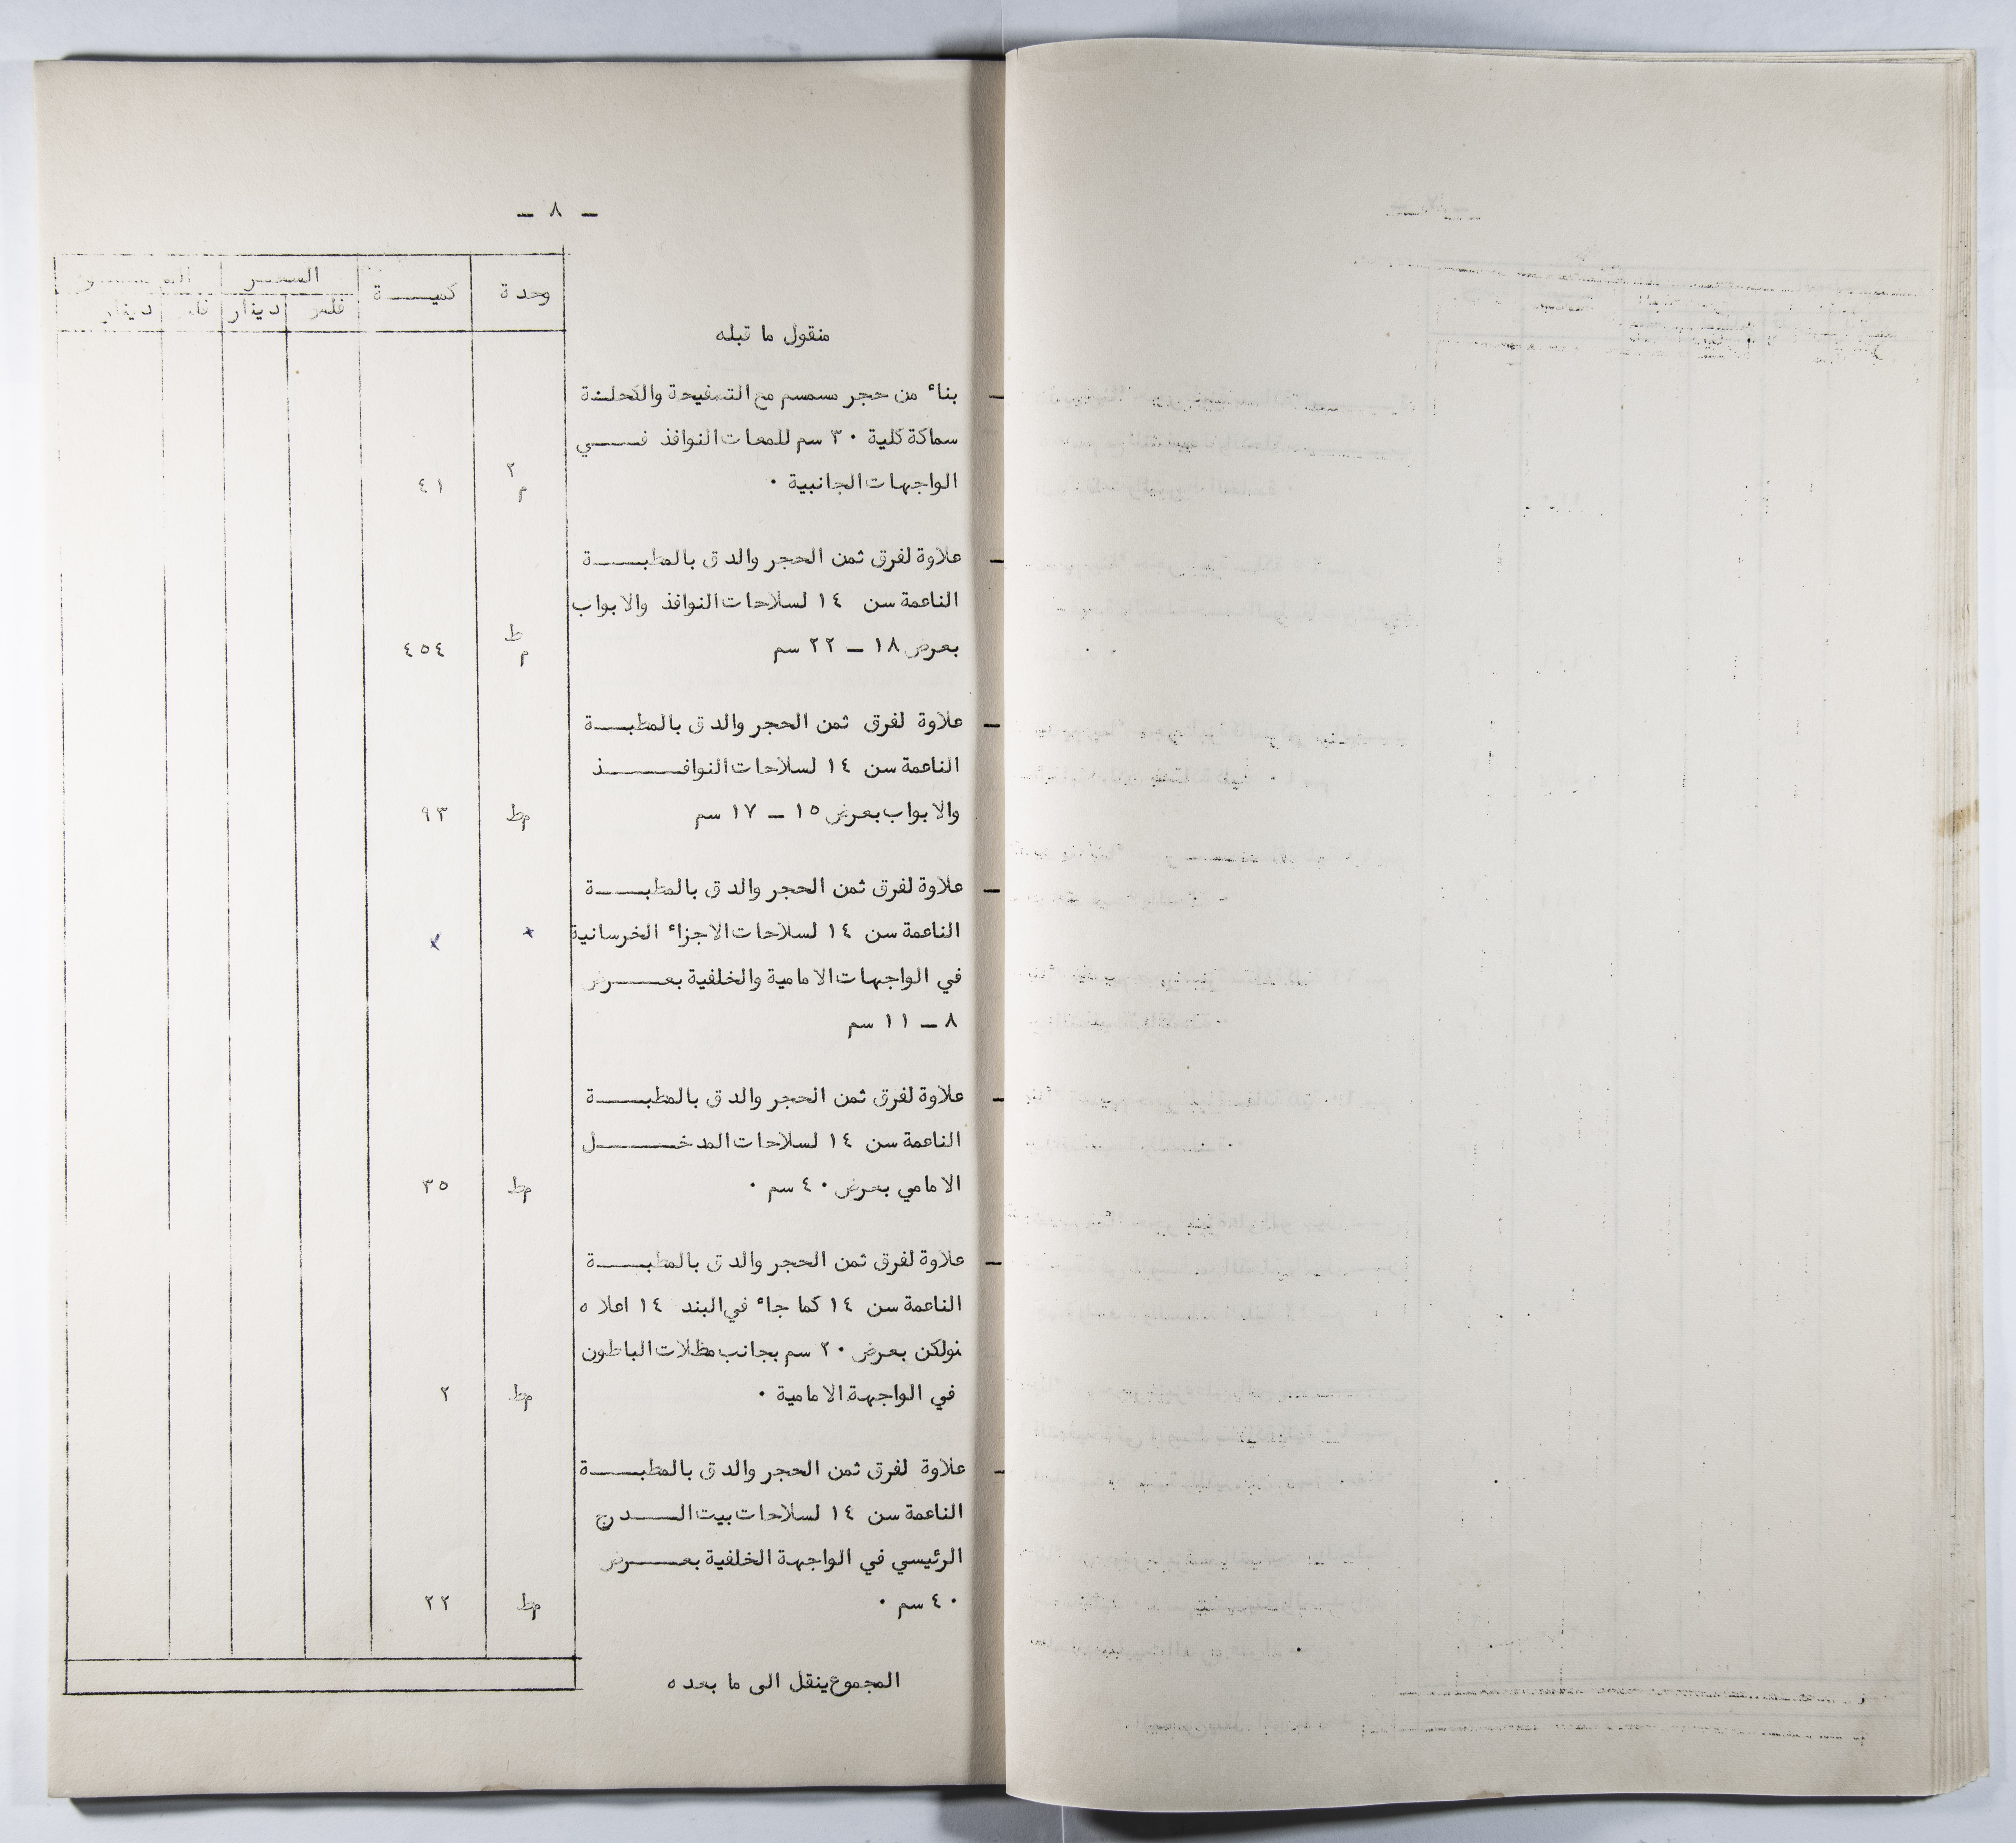 – ٨ –
وحدة كميــــة السعــر
فلس دينار دينار
منقول ما قبله
– بناء من حجر مسمسم مع التصفيحة والكحلة
سماكة كلية ٣٠ سم للمعات النوافذ فــــي
الواجهات الجانبية ٠
م٢ ٤١
– علاوة لفرق ثمن الحجر والدق بالمطبــــة
الناعمة سن ١٤ لسلاحات النوافذ والابواب
بعرض ١٨ – ٢٢ سم
م ط ٤٥٤
– علاوة لفرق ثمن الحجر والدق بالمطبــــة
الناعمة سن ١٤ لسلاحات النوافــــذ
والابواب بعرض ١٥ – ١٧ سم
مط ٩٣
– علاوة لفرق ثمن الحجر والدق بالمطبــــة
الناعمة سن ١٤ لسلاحات الاجزاء الخرسانية
x x
في الواجهات الامامية والخلفية بعــــرض
٨ – ١١ سم
– علاوة لفرق ثمن الحجر والدق بالمطبــــة
الناعمة سن ١٤ لسلاحات المدخــــل
الامامي بعرض ٤٠ سم ٠
مط ٣٥
– علاوة لفرق ثمن الحجر والدق بالمطبــــة
الناعمة سن ١٤ كما جاء في البند ١٤ اعلاه
ولكن بعرض ٢٠ سم بجانب مظلات الباطون
في الواجهة الامامية ٠
مط ٢
– علاوة لفرق ثمن الحجر والدق بالمطبــــة
الناعمة سن ١٤ لسلاحات بيت الــــدرج
الرئيسي في الواجهة الخلفية بعــــرض
٤٠ سم ٠
مط ٢٢
المجموع ينقل الى ما بعده